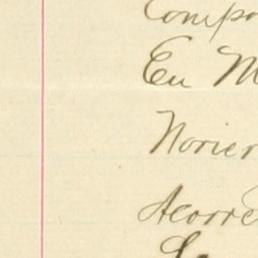 Compo
En M
Norier
Acorre